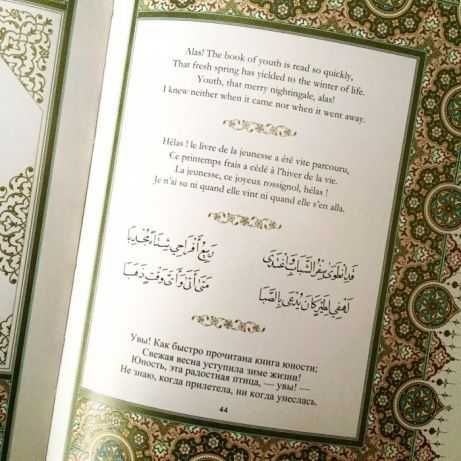 Alas! The book of youth is read so quickly,
That fresh spring has yielded to the winter of life.
Youth, that merry nightingale, alas!
I knew neither when it came nor when it went away.
Hélas ! le livre de la jeunesse a été vite parcouru,
Ce printemps frais a cédé à l'hiver de la vie.
La jeunesse, ce joyeux rossignol, hélas !
Je n'ai su ni quand elle vint ni quand elle s'en alla.
قَدِ انْطَوَى سِفْرُ الشَّبَابِ وَاغْتَدَى رَبِيعُ أَفْرَاحِي شِتَاءً مُجْدِبَا
لَهْفِي لِطَيْرٍ كَانَ يُدْعَى بِالصِّبَا مَتَى أَتَى وَأَيَّ وَقْتٍ ذَهَبَا
Увы! Как быстро прочитана книга юности;
Свежая весна уступила зиме жизни!
Юность, эта радостная птица, — увы! —
Не знаю, когда прилетела, ни когда унеслась.
44